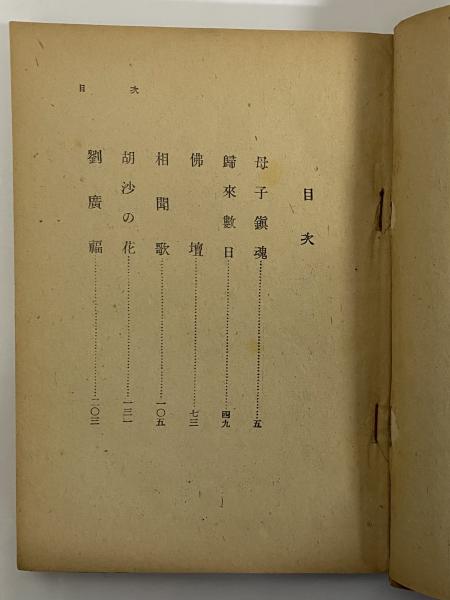 目次
目次
母子鎭魂……五
歸來數日……四九
佛壇……七三
相聞歌……一〇五
胡沙の花……一三一
劉廣福……二〇三